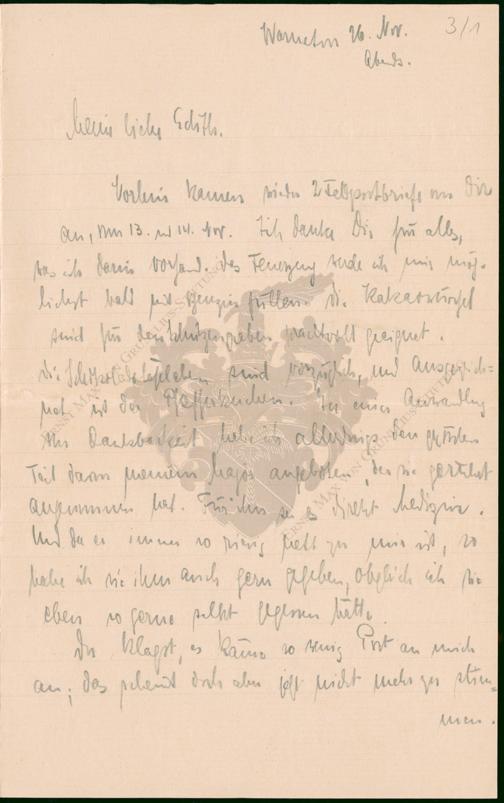 3/1
Warneton 26. Nov.
Abends.
Meine liebe Edith.
Vorhin kamen wieder 2 Feldpostbriefe von Dir
an, vom 13. und 14. Nov. Ich danke Dir für alles,
was ich darin vorfand. Das Feuerzeug werde ich mir mög-
lichst bald mit Benzin füllen. Die Kakaowürfel
sind für den Schützengraben prachtvoll geeignet.
Die Schokoladetäfelchen sind vorzüglich, und ausgezeich-
net ist der Pfefferkuchen. In einer Anwandlung
von Dankbarkeit habe ich allerdings den größten
Teil davon meinem Major angeboten, der sie gerührt
angenommen hat. Für ihn sei es direkt Medizin.
Und da er immer so riesig nett zu mir ist, so
habe ich sie ihm auch gern gegeben, obgleich ich sie
eben so gerne selbst gegessen hätte.
Du klagst, es käme so wenig Post an mich
an; das scheint doch aber jetzt nicht mehr zu stim-
men.
ERNST MAX VON GRUNELIUS-STIFTUNG
ERNST MAX VON GRUNELIUS-STIFTUNG